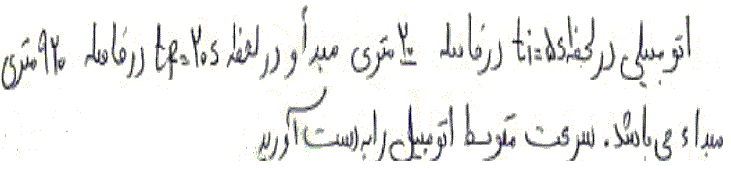 اتومبیلی در لحظه ti=۵s در فاصله ۲۰ متری مبدأ و در لحظه tf=۲۰s در فاصله ۹۲۰ متری
مبداء می باشد. سرعت متوسط اتومبیل را به دست آورید